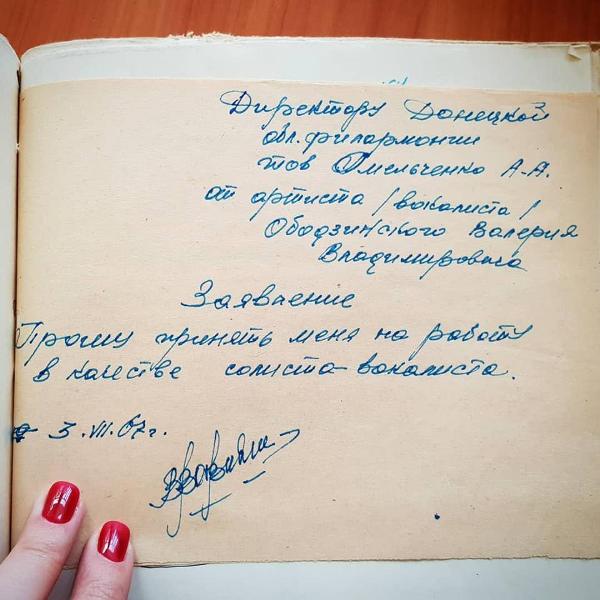 Директору Донецкой
обл. филармонии
тов Омельченко А-А.
от артиста /вокалиста/
Ободзинского Валерия
Владимировича
Заявление
Прошу принять меня на работу
в качестве солиста-вокалиста.
3.VII.67г.